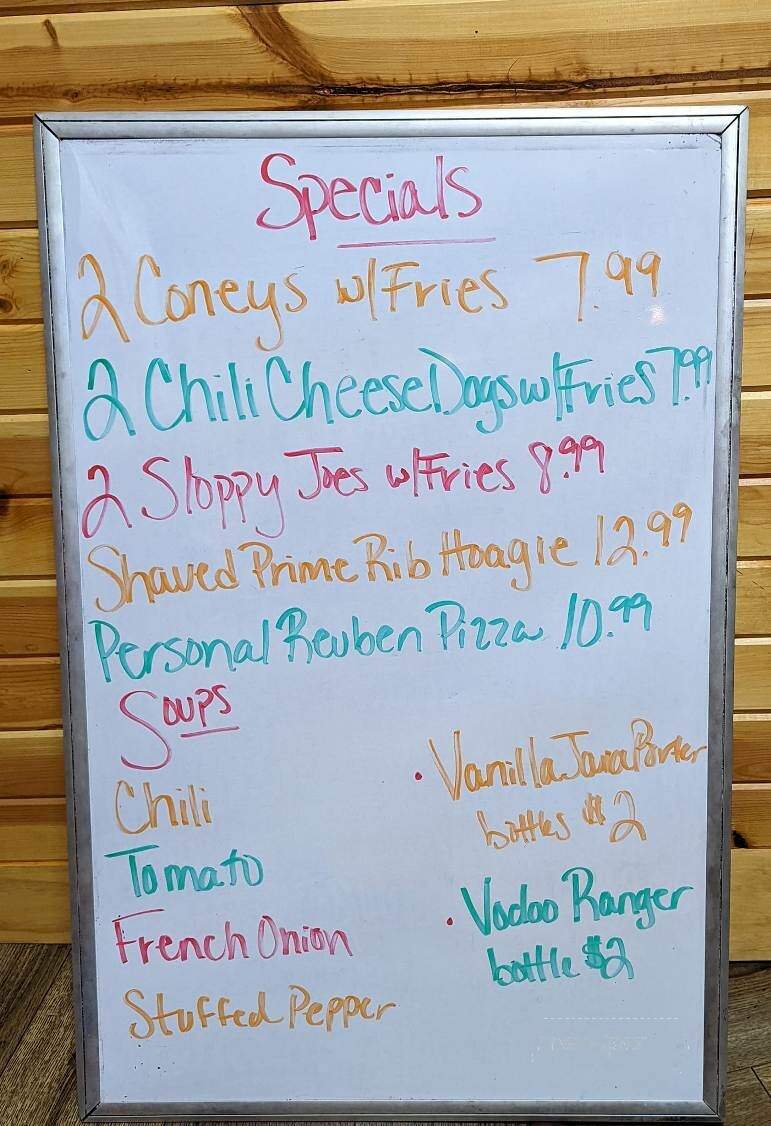 Specials
2 Coneys w/Fries 7.99
2 Chili Cheese Dogs w/Fries 7.99
2 Sloppy Joes w/Fries 8.99
Shaved Prime Rib Hoagie 12.99
Personal Reuben Pizza 10.99
Soups
Chili
Tomato
French Onion
Stuffed Pepper
• Vanilla Java Porter
bottles $2
• Vodoo Ranger
bottle $2